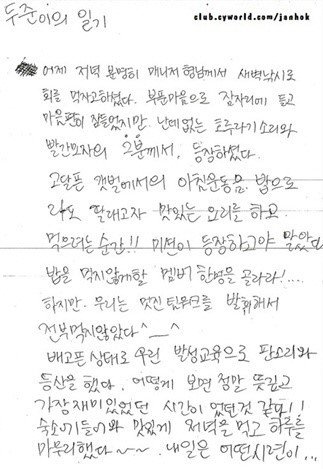 두준이의 일기
club.cyworld.com/janhok
어제 저녁 분명히 매니저 형님께서 새벽낚시로
회를 먹자고하셨다. 부푼마음으로 잠자리에 들고
마음편이 잠들었지만, 난데없는 호루라기소리와
빨간모자의 2분께서, 등장하셨다.
고달픈 갯벌에서의 아침운동을 밥으로
라도 달래고자 맛있는 요리를 하고
먹으려는 순간!! 미션이 등장하고야 말았다
밥을 먹지않게할 멤버 한명을 골라라!....
하지만, 우리는 멋진 팀워크를 발휘해서
전부먹지않았다^__^
배고픈 상태로 우린 반성교육으로 판소리와
등산을 했다. 어떻게 보면 정말 뜻깊고
가장재미있었던 시간이 었던것 같다!!
숙소가들어와 맛있게 저녁을 먹고 하루를
마무리했다~~. 내일은 어떤시련이...